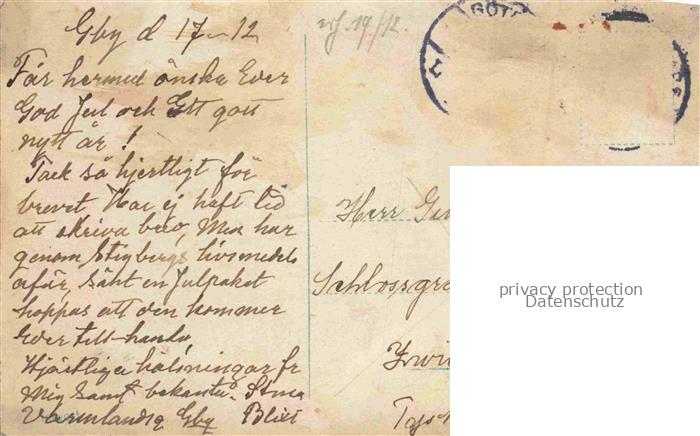 Gby d 17-12
Får hermed önska Eder
God Jul och Ett gott
nytt år!
Tack så hjertligt för
brevet Har ej haft tid
att skriva brev, Men har
genom Stigbergs livsmedels
afär, sänt en Julpaket
hoppas att den kommer
Eder till-handa,
Hjärtliga hälsningar fr
Mig samt bekanta.
Värmlandsg Gbg
19/12
GÖT
Herr
Schlossgr
privacy protection
Datenschutz